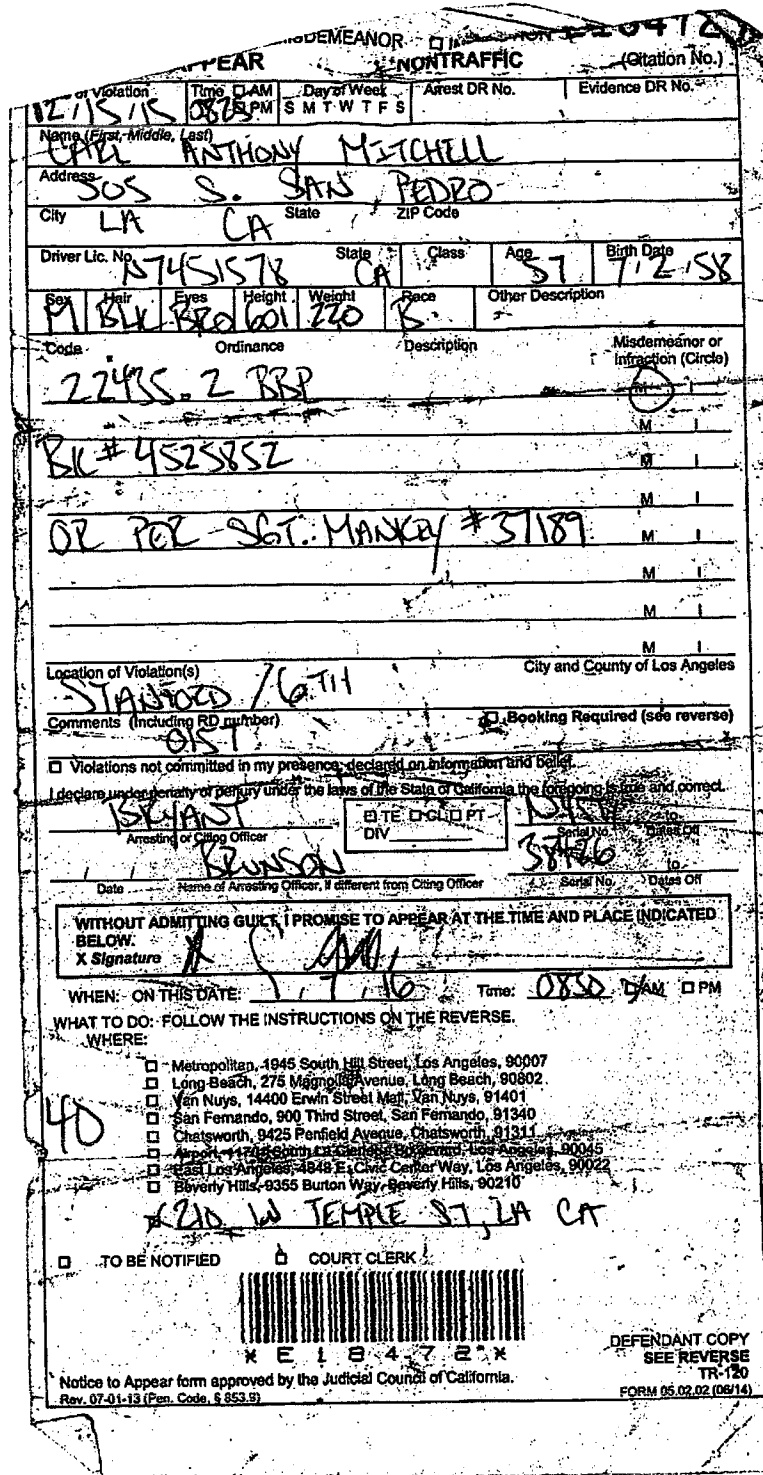 MISDEMEANOR
APPEAR NONTRAFFIC (Citation No.)
of Violation Time □ AM □ PM Day of Week S M T W T F S Arrest DR No. Evidence DR No.
12/15/15 0825
Name (First, Middle, Last)
CARL ANTHONY MITCHELL
Address
505 S. SAN PEDRO
City State ZIP Code
LA CA
Driver Lic. No. State Class Age Birth Date
N7451578 CA 57 7/2/58
Sex Hair Eyes Height Weight Race Other Description
M BLK BRO 601 220 B
Code Ordinance Description Misdemeanor or Infraction (Circle)
22435.2 BBP M I
M I
BK# 4525852 M I
M I
OR PER SGT. MANKEY #37189 M I
M I
M I
M I
Location of Violation(s) City and County of Los Angeles
STANFORD / 6TH
Comments (Including RD number) □ Booking Required (see reverse)
0157
□ Violations not committed in my presence, declared on information and belief.
I declare under penalty of perjury under the laws of the State of California the foregoing is true and correct.
BRYANT □ TE □ CL □ PT to
Arresting or Citing Officer DIV Serial No. Dates Off
/ / BRUNSON 38426 to
Date Name of Arresting Officer, if different from Citing Officer Serial No. Dates Off
WITHOUT ADMITTING GUILT, I PROMISE TO APPEAR AT THE TIME AND PLACE INDICATED
BELOW.
X Signature X
WHEN: ON THIS DATE: 1/7/16 Time: 0830 □ AM □ PM
WHAT TO DO: FOLLOW THE INSTRUCTIONS ON THE REVERSE.
WHERE:
□ Metropolitan, 1945 South Hill Street, Los Angeles, 90007
□ Long Beach, 275 Magnolia Avenue, Long Beach, 90802
□ Van Nuys, 14400 Erwin Street Mall, Van Nuys, 91401
40 □ San Fernando, 900 Third Street, San Fernando, 91340
□ Chatsworth, 9425 Penfield Avenue, Chatsworth, 91311
□ Airport, 11701 South La Cienega Boulevard, Los Angeles, 90045
□ East Los Angeles, 4848 E. Civic Center Way, Los Angeles, 90022
□ Beverly Hills, 9355 Burton Way, Beverly Hills, 90210
X 210 W TEMPLE ST, LA CA
□ TO BE NOTIFIED □ COURT CLERK
* E 1 8 4 7 2 *
DEFENDANT COPY
SEE REVERSE
Notice to Appear form approved by the Judicial Council of California. TR-120
Rev. 07-01-13 (Pen. Code, § 853.9) FORM 05.02.02 (06/14)